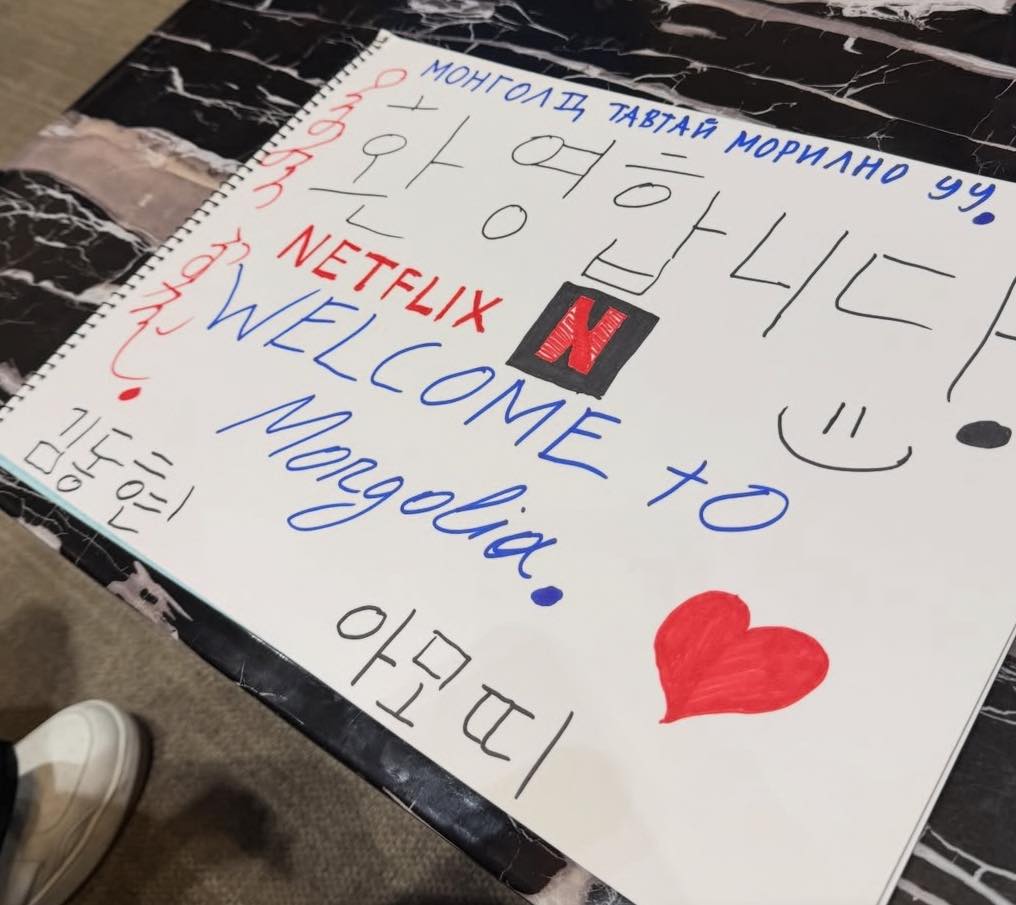 МОНГОЛД ТАВТАЙ МОРИЛНО УУ.
환영합니다.
NETFLIX
N
WELCOME to
Mongolia.
김동현
아모띠